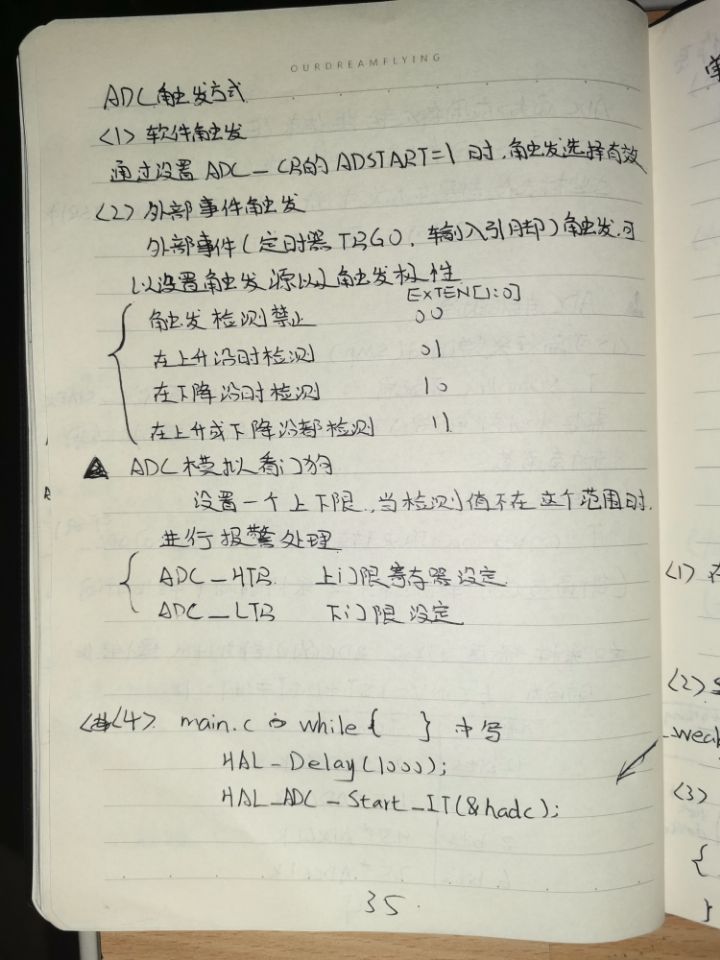 OURDREAMFLYING
ADC触发方式
<1> 软件触发
通过设置 ADC_CR的ADSTART=1 时,触发选择有效
<2> 外部事件触发
外部事件(定时器TRGO,输入引脚)触发,可
以设置触发源以及触发极性
EXTEN[1:0]
触发检测禁止 00
在上升沿时检测 01
在下降沿时检测 10
在上升或下降沿都检测 11
ADC模拟看门狗
设置一个上下限,当检测值不在这个范围时,
进行报警处理
ADC_HTR 上门限寄存器设定
ADC_LTR 下门限设定
<4> main.c の while { } 中写
HAL_Delay(1000);
HAL_ADC_Start_IT(&hadc);
35.
<1> 在
<2>
_weak
<3>
{
}